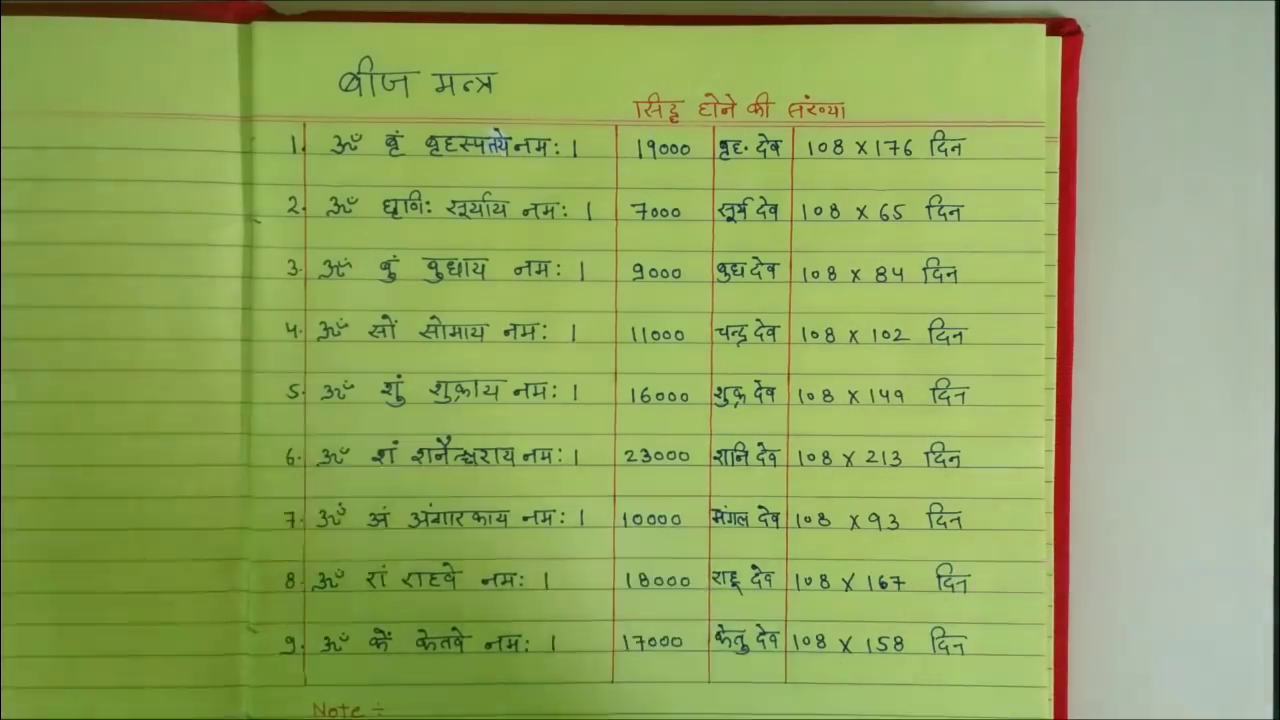 बीज मन्त्र
सिद्ध होने की संख्या
1. ॐ बृं बृहस्पतये नमः । 19000 बृह. देव 108 X 176 दिन
2. ॐ घृणिः सूर्याय नमः । 7000 सूर्य देव 108 X 65 दिन
3. ॐ बुं बुधाय नमः । 9000 बुध देव 108 X 84 दिन
4. ॐ सों सोमाय नमः । 11000 चन्द्र देव 108 X 102 दिन
5. ॐ शुं शुक्राय नमः । 16000 शुक्र देव 108 X 149 दिन
6. ॐ शं शनैश्चराय नमः । 23000 शनि देव 108 X 213 दिन
7. ॐ अं अंगारकाय नमः । 10000 मंगल देव 108 X 93 दिन
8. ॐ रां राहवे नमः । 18000 राहू देव 108 X 167 दिन
9. ॐ कें केतवे नमः । 17000 केतु देव 108 X 158 दिन
Note :-